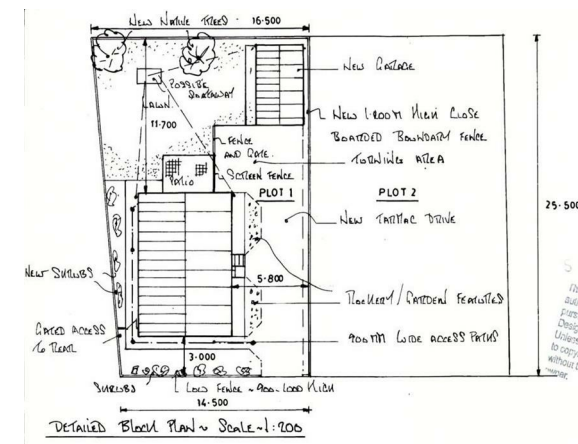 NEW NATIVE TREES
16·500
NEW GARAGE
POSSIBLE
SOAKAWAY
LAWN
11·700
NEW 1·800M HIGH CLOSE
BOARDED BOUNDARY FENCE
FENCE
AND GATE
TURNING AREA
SCREEN FENCE
PATIO
PLOT 1
PLOT 2
25·500
NEW TARMAC DRIVE
NEW SHRUBS
5·800
ROCKERY / GARDEN FEATURES
GATED ACCESS
TO REAR
900MM WIDE ACCESS PATHS
3·000
SHRUBS
LOW FENCE ~ 900-1000 HIGH
14·500
DETAILED BLOCK PLAN ~ SCALE ~ 1:200
to copy
without
owner.